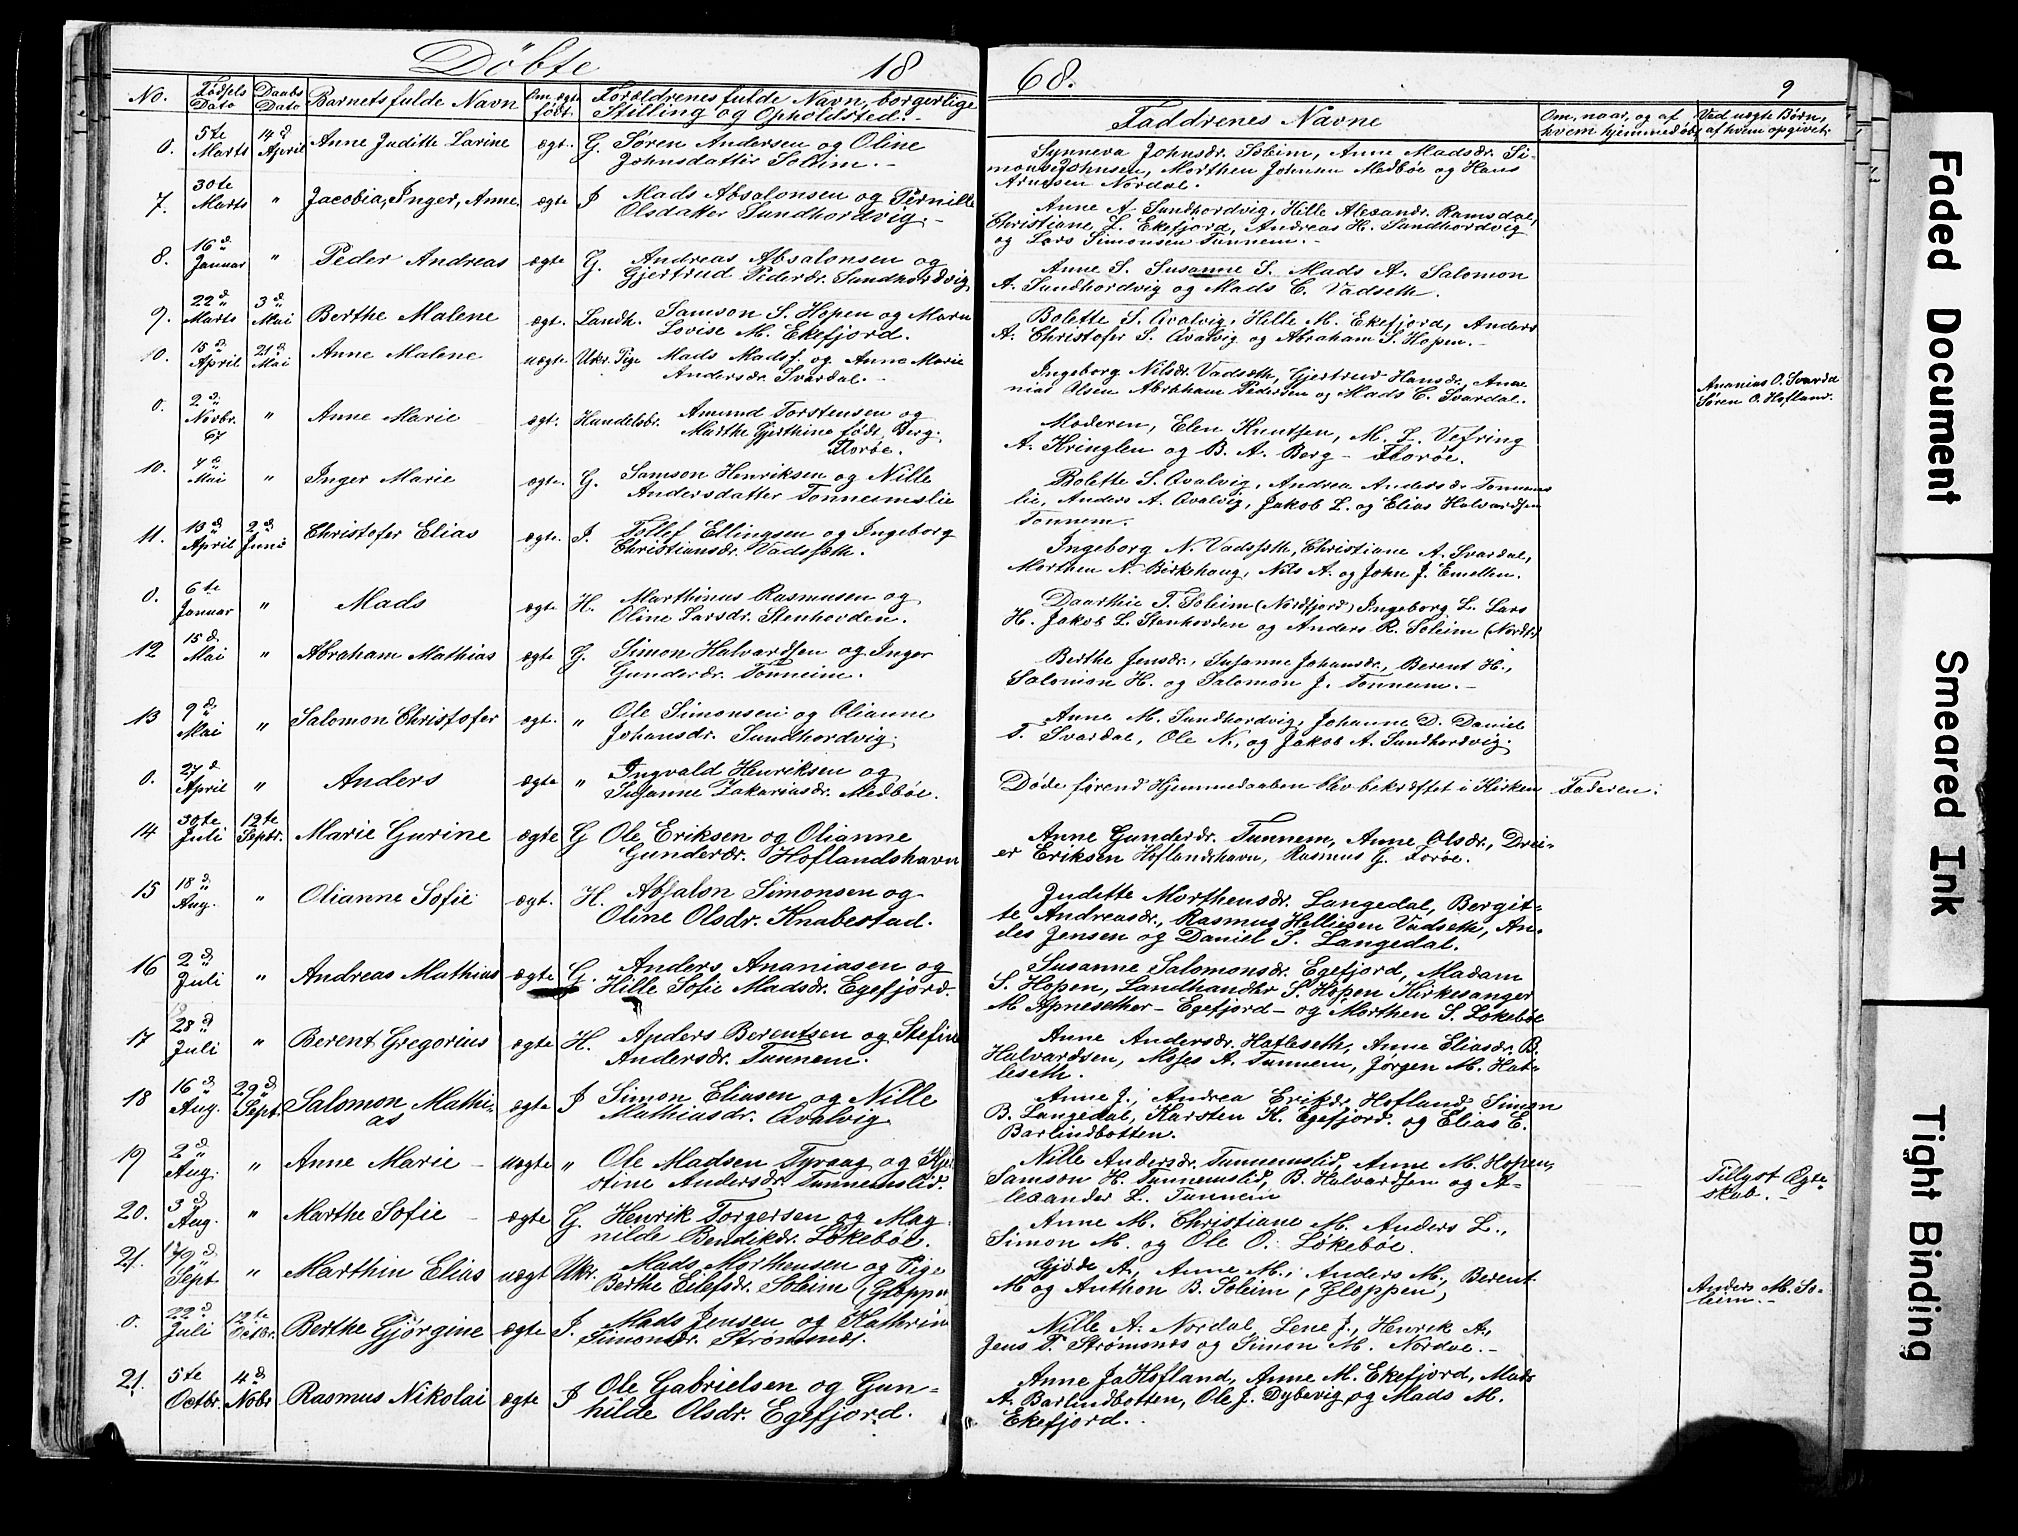 Döbte 18
68. 9
No. Fødsels Dato Daabs Dato Barnets fulde Navn Om ægte født. Forældrenes fulde Navn, borgerlige Stilling og Opholdsted.
Faddrenes Navne Om, naar, og af hvem hjemmedøbt Ved uægte Børn, af hvem opgivet.
0. 5te Marts 14d April Anne Juditte Larine ægt. G. Søren Andersen og Oline
Johnsdatter Soleim. -
Synneva Johnsdr. Soleim, Anne Madsdr. Si-
Johnsen, Morthen Johnsen Medböe og Hans
Arnesen Nordal.
7. 30te Marts " Jacobia, Inger, Anne. ægte I Mads Absalonsen og Pernille
Olsdatter Sundhordvig. -
Anne A. Sundhordvig, Hille Alexandr. Ramsdal,
Christiane L. Ekefjord, Andreas H. Sundhordvig
og Lars Simonsen Tunnem. -
8. 16d Januar " Peder Andreas ægte G. Andreas Absalonsen og
Gjertrud Pedersdr. Sundhordvig
Anne S. Susanne S. Mads A. Salomon
A. Sundhordvig og Mads C. Vadseth.
9. 22d Marts 3d Mai Berthe Malene ægt. Landh. Samson S. Hopen og Maren
Lovise M. Ekefjord.
Bolette S. Avalvig, Hille M. Ekefjord, Anders
A. Christofer S. Avalvig og Abraham S. Hopen. -
10. 15d April 21d Mai Anne Malene uægte. Ukr. Pige Mads Madss. og Anne Marie
Andersdr. Svardal. -
Ingeborg Nilsdr. Vadseth, Gjertrud Hansdr., Ana
nias Olsen Abraham Pedersen og Mads C. Svardal.
Ananias O. Svardal
Søren O. Hofland.
0. 2d Novbr. 67 " Anne Marie ægt. Handelsbr. Amund Torstensen og
Marthe Gjerthine født Berg.
Florøe.
Moderen, Elen Knutsen, M. L. Vefring
A. Kringlen og B. A. Berg - Florøe.
10. 4d Mai " Inger Marie ægte. G. Samson Henriksen og Nille
Andersdatter Tonneimslie
Bolette S. Avalvig, Andrea Andersdr Tonneims
lie, Anders A. Avalvig, Jakob L. og Elias Halvardsen
Tonnem.
11. 13d April 2d Juni Christofer Elias ægte. I. Tollef Ellingsen og Ingeborg
Christiansdr. Vadsseth.
Ingeborg N. Vadsseth, Christiane A. Svardal,
Morthen N. Birkehaug, Nils A. og John J. Emellen.
0. 6te Januar " Mads ægte H. Marthinus Rasmusen og
Oline Larsdr. Stenhorden.
Daarthie T. Soleim (Nordfjord) Ingeborg L. Lars
H. Jakob L. Stenhorden og Anders R. Soleim (Nordf.)
12 15d Mai " Abraham Mathias ægte G. Simon Halvardsen og Inger
Gunderdr. Tonneim.
Berthe Jensdr., Susanne Johansdr., Berent H.,
Salomon H. og Salomon J. Tonneim. -
13 9d Mai " Salomon Christofer ægt. " Ole Simonsen og Olianne
Johansdr. Sundhordvig.
Anne M. Sundhordvig, Johanne D. Daniel
S. Svardal, Ole N., og Jakob A. Sundhordvig.
0. 27d April " Anders ægte " Ingvald Henriksen og
Susanne Zakariasdr. Medbøe.
Døde førend Hjemmedaaben blev bekræftet i Kirken Faderen.
14 30te Juli 12te Septr. Marie Gurine ægte G Ole Eriksen og Olianne
Gunderdr. Hoflandshavn
Anne Gunderdr. Tunnem, Anne Olsdr., Drei-
er Eriksen Hoflandshavn, Rasmus G. Florøe.
15 18d Aug. " Olianne Sofie ægt. H. Absalon Simonsen og
Oline Olsdr. Knabestad.
Juditte Morthensdr. Langedal, Bergit-
te Andreasdr., Rasmus Helliesen Vadseth, An-
des Jensen og Daniel S. Langedal.
16 2d Juli " Andreas Mathias ægte G. Anders Ananiasen og
Hille Sofie Madsdr. Egefjord.
Susanne Salomonsdr. Egefjord, Madam
S. Hopen, Landhandlr S. Hopen Kirkesanger
M Apnesether - Egefjord - og Morthen S. Løkebøe
17 28d Juli " Berent Gregorius ægte H. Anders Berentsen og Stefine
Andersdr. Tunnem.
Anne Andersdr. Hatleseth, Anne Eliasdr. B.
Halvardsen, Moses A. Tunnem, Jørgen M. Hat-
leseth.
18 16d Aug. 29d Sept. Salomon Mathi-
as ægte I Simon Eliasen og Nille
Mathiasdr. Avalvig
Anne J., Andrea Eriksdr. Hofland, Simon
B. Langedal, Karsten H. Egefjord. og Elias E.
Barlindbotten.
19 2d Aug. " Anne Marie - uægte " Ole Madsen Tyraag og Kjer
stine Andersdr. Tunnemslid.
Nille Andersdr. Tunnemslid, Anne M. Hopen,
Samson H. Tunnemslid, B. Halvardsen og A-
lexander L. Tunnem
Tillyst Ægte-
skab. -
20. 3d Aug. " Marthe Sofie - ægte G. Henrik Torgersen og Mag-
nilde Bendiksdr. Løkebøe.
Anne M. Christiane M. Anders L.,
Simon M. og Ole O. Løkebøe.
21. 19d Sept. " Marthin Elias uægt Ukr. Mads Morthensen og Pige
Berthe Eilefsdr. Soleim (Gloppen
Gjøde A, Anne M., Anders M., Berent
M og Anthon B. Soleim, (Gloppen)
Anders M. So-
leim. -
0. 22d Juli 12te Octbr. Berthe Gjørgine ægte I. Mads Jensen og Kathrin
Simonsdr. Strømnes.
Nille A. Nordal, Lene J., Henrik A,
Jens T. Strømsnes og Simon M. Nordal. -
21. 5te Octbr. 4d Nobr Rasmus Nikolai ægte I Ole Gabrielsen og Gun-
hilde Olsdr. Egefjord.
Anne Ja Hofland, Anne M. Ekefjord, Mads
A. Barlindbotten, Ole J. Dybevig, og Mads M.
Ekefjord.
Faded Document
Smeared Ink
Tight Binding